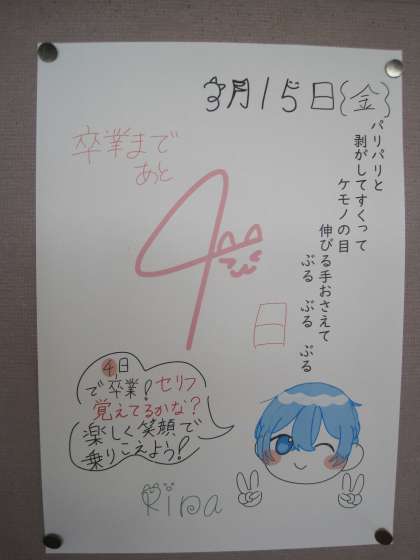 3月15日(金)
卒業まで
あと
4
日
パリパリと
剥がしてすくって
ケモノの目
伸びる手おさえて
ぶる ぶる ぶる
4日
で卒業!セリフ
覚えてるかな?
楽しく笑顔で
乗りこえよう!
Rina